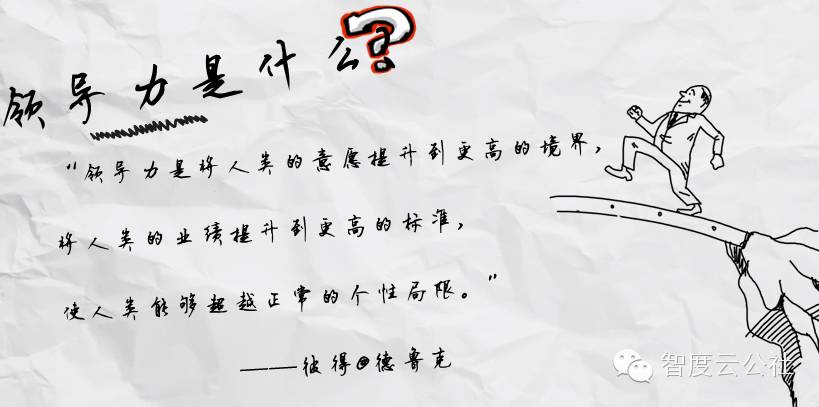 领导力是什么?
“领导力是将人类的意愿提升到更高的境界，
将人类的业绩提升到更高的标准，
使人类能够超越正常的个性局限。”
——彼得@德鲁克
智度云公社